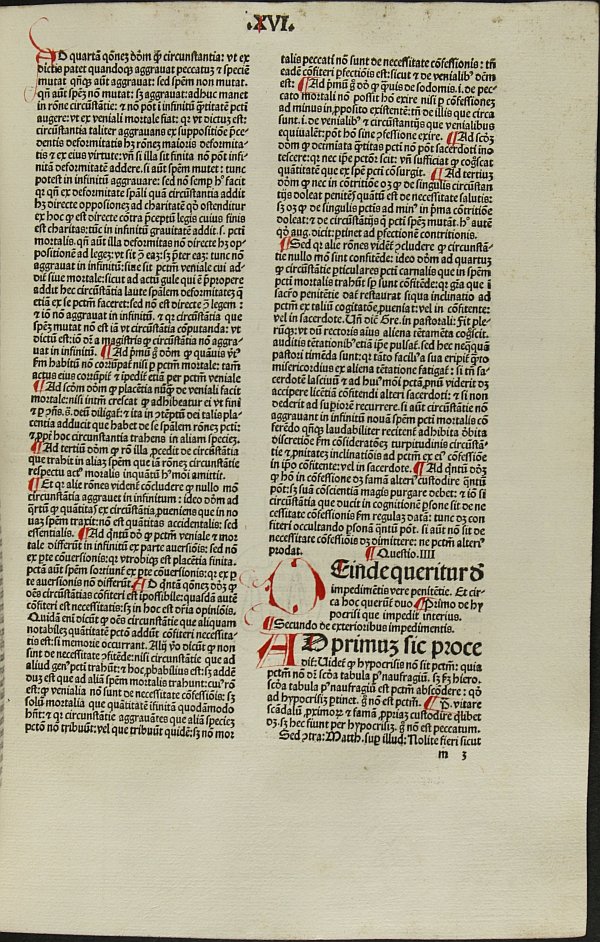 .XVI.
AD quartā q̄onez dōm ꝙ circunstantia: vt ex
dictis patet quandoqꝫ aggrauat peccatuꝫ & speciē
mutat qn̄qꝫ aūt aggrauat: sed spēm non mutat.
qn̄ aūt spēꝫ nō mutat: sꝫ aggrauat: adhuc manet
augere: vt ex veniali mortale fiat: qꝛ vt dictuꝫ est:
circūstantia taliter aggrauans ex suppositiōe p̄ce
dentis deformitatis hꝫ rōneꝫ maioris deformita-
tis & ex eius virtute: vn̄ si illa sit finita nō pōt infi-
nitā deformitatē addere. si aūt spēm mutat: tunc
potest in infinitū aggrauare: sed nō semp hͦ facit
qꝛ qn̄ ex deformitate spāli quā circūstantia addit
hꝫ directe oppositionē ad charitatē qd̄ ostenditur
ex hoc ꝙ est directe cōtra p̄ceptū legis cuius finis
est charitas: tūc in infinitū grauitatē addit. s. pcti
mortalis. qn̄ aūt illa deformitas nō directe hꝫ op-
positionē ad legeꝫ: vt sit ꝓ eaꝫ: sꝫ p̄ter eaꝫ: tunc nō
aggrauat in infinitū: siue sit pctm̄ veniale cui ad-
dit̄ siue mortale: sicut ad actū gule qui ē p̄propere
addit hec circūstātia laute spālem deformitateꝫ ꝙ
etiā ex se pctm̄ faceret: sed nō est directe ꝯ̄ legem:
& iō nō aggrauat in infinitū. & qꝛ circūstātia que
spēꝫ mutat nō est iā vt circūstātia cōputanda: vt
dictū est: iō dn̄t a magistris ꝙ circūstātia nō aggra-
uat in infinitū. ¶ Ad pͥmū g̊ dōm ꝙ quāuis vͥtꝰ
actus eius corrūpit̄ & īpedit̄ etiā per pctm̄ veniale
¶ Ad scdm̄ dōm ꝙ placētia nūqꝫ de veniali facit
mortale: nisi intm̄ crescat ꝙ adhibeatur ei vt fini
centia adducit que habet de se spālem rōneꝫ pcti:
& ꝓpͥ hoc circunstantia trahens in aliam specieꝫ.
¶ Ad tertiū dōm ꝙ rō illa ꝓcedit de circūstātia
que trahit in aliaꝫ spēm que iā rōneꝫ circūstātie
respectu actꝰ moralis inquātū hꝰmōi amittit.
¶ Et qꝛ alie rōnes videnť cōcludere ꝙ nullo mō
circūstantia aggrauet in infinitum: ideo dōm ad
qͣrtū ꝙ quātitas ex circūstātia ꝓueniens que in no
uaꝫ spēm traxit: nō est quātitas accidentalis: sed
essentialis. ¶ Ad qͥntū dō ꝙ pctm̄ veniale & mor
tale differūt in infinitū ex parte auersiōis: sed nō
ex pte cōuersionis: qꝛ vtrobiqꝫ est placētia finita.
te auersionis nō differūt. ¶ AD qͥntā q̄onez dōꝫ ꝙ
oēs circūstātias cōfiteri est īpossibile: quasdā autē
cōfiteri est necessitatis: sꝫ in hoc est dr̄ia opiniōis.
Quidā eni dicūt ꝙ oēs circūstātie que aliquam
notabileꝫ quātitatē pctō addūt cōfiteri necessita-
tis est: si memorie occurrant. Alij v̊o dicūt ꝙ non
sunt de necessitate ꝯfitēde: nisi circūstātie que ad
aliud genꝰ pcti trahūt: & hoc ꝓbabilius est: sꝫ addē
duꝫ est que ad aliā spēm mortalis trahunt: cuiꝰ rō
est: ꝙ venialia nō sunt de necessitate cōfessiōis: sꝫ
solū mortalia que quātitatē ifinitā quodāmodo
hn̄t: & qꝛ circunstātie aggrauātes que aliā specieꝫ
pctō nō tribuūt: vel que tribuūt quidē: sꝫ nō mor
talis peccati nō sunt de necessitate cōfessionis: tn̄
eadē cōfiteri ꝑfectiōis est: sicut & de venialibꝰ dcm̄
est: ¶ Ad pͥmū g̊ dō ꝙ qͣuis de sodomis. i. de pec-
cato mortali nō possit hō exire nisi ꝑ cōfessionez
ad minus in ꝓposito existentē: tn̄ de illis que circa
sunt. i. de venialibꝰ & circunstantijs que venialibus
equiualēt: pōt hō sine ꝯfessione exire. ¶ Ad scdꝫ
dōm ꝙ decimata qͣtitas pcti nō pōt sacerdoti ino
tescere: qꝛ nec ipe pctōr̄ scit: vn̄ sufficiat ꝙ cog̊scat
quātitatē que ex spē pcti cōsurgit. ¶ Ad tertiuꝫ
dōm ꝙ nec in cōtritiōe oꝫ ꝙ de singulis circūstan
tijs doleat penitēs quātū est de necessitate salutis:
sꝫ oꝫ ꝙ de singulis pctis ad minꝰ in pͥma cōtritiōe
doleat: & de circūstātijs q̄ pcti spēꝫ mutāt. hͦ autē
qd̄ aug. dicit: ptinet ad ꝑfectionē contritionis.
¶ Sed qꝛ alie rōnes vidēť ꝯcludere ꝙ circunstā-
tie nullo mō sint confitēde: ideo dōm ad quartuꝫ
ꝙ circūstātie pticulares pcti carnalis que in spēm
pcti mortalis trahūt sp̄ sunt cōfitēde: qꝛ gr̄a que i
sacrō penitētie dat̄ restaurat siqua inclinatio ad
pctm̄ ex taliū cogitatōe ꝓueniat: vel in cōfitente:
vel in sacerdote. Cn̄ dic̄ Gre. in pastorali: Fit ple-
rūqꝫ: vt dū rectoris aīus aliena tētamēta cog̊scit.
auditis tētationibꝰ etiā ipe pulsat̄. sed hec neqͣquā
pastori timēda sunt: qꝛ tāto faciliꝰ a sua eripit̄ qͣto
misericordiꝰ ex aliena tētatione fatigat̄: si tn̄ sa-
cerdotē lasciuū & ad huiꝰmōi pctā ꝓnū viderit dꝫ
accipere licētiā cōfitendi alteri sacerdoti: & si non
dederit ad supͥorē recurrere. si aūt circūstātie nō
aggrauant in infinitū nouā spēm pcti mortalis cō
ferēdo qn̄qꝫ laudabiliter recitent̄ adhibita ōbita
in ipō cōfitente: vel in sacerdote. ¶ Ad qͥntū dōꝫ
ꝙ hō in cōfessione dꝫ famā alteriꝰ custodire qͣntū
pōt: sꝫ suā cōscientiā magis purgare debet: & iō si
circūstātia que ducit in cognitionē psone sit de ne
cessitate cōfessionis fm̄ regulaꝫ datā: tunc dꝫ con
fiteri occultando ꝑsonā qͣntū pōt. si aūt nō sit de
necessitate cōfessiōis dꝫ dimittere: ne pctm̄ alteriꝰ
prodat. ¶ Questio. IIII
DEinde queritur ď
impedimētis vere penitētie. Et cir-
ca hoc querūť duo ¶ Primo de hy
pocrisi que impedit interius.
¶ Secundo de exterioribus impedimentis.
AD primuꝫ sic proce
dit̄: Videť ꝙ hypocrisis nō sit pctm̄: quia
pctm̄ nō dr̄ scd̄a tabula pꝰ naufragiū. sꝫ fꝫ hiero.
scd̄a tabula pꝰ naufragiū est pctm̄ abscōdere: qd̄
ad hypocrisiꝫ ptinet. g̊ nō est pctm̄. ¶ P. vitare
scādalū ꝓximoꝝ & famā ꝓpriaꝫ custodire qͥlibet
dꝫ. sꝫ hec fiunt per hypocrisiꝫ. g̊ nō est peccatum.
Sed ꝯtra: Matth. sup̄ illud: Nolite fieri sicut
m 3